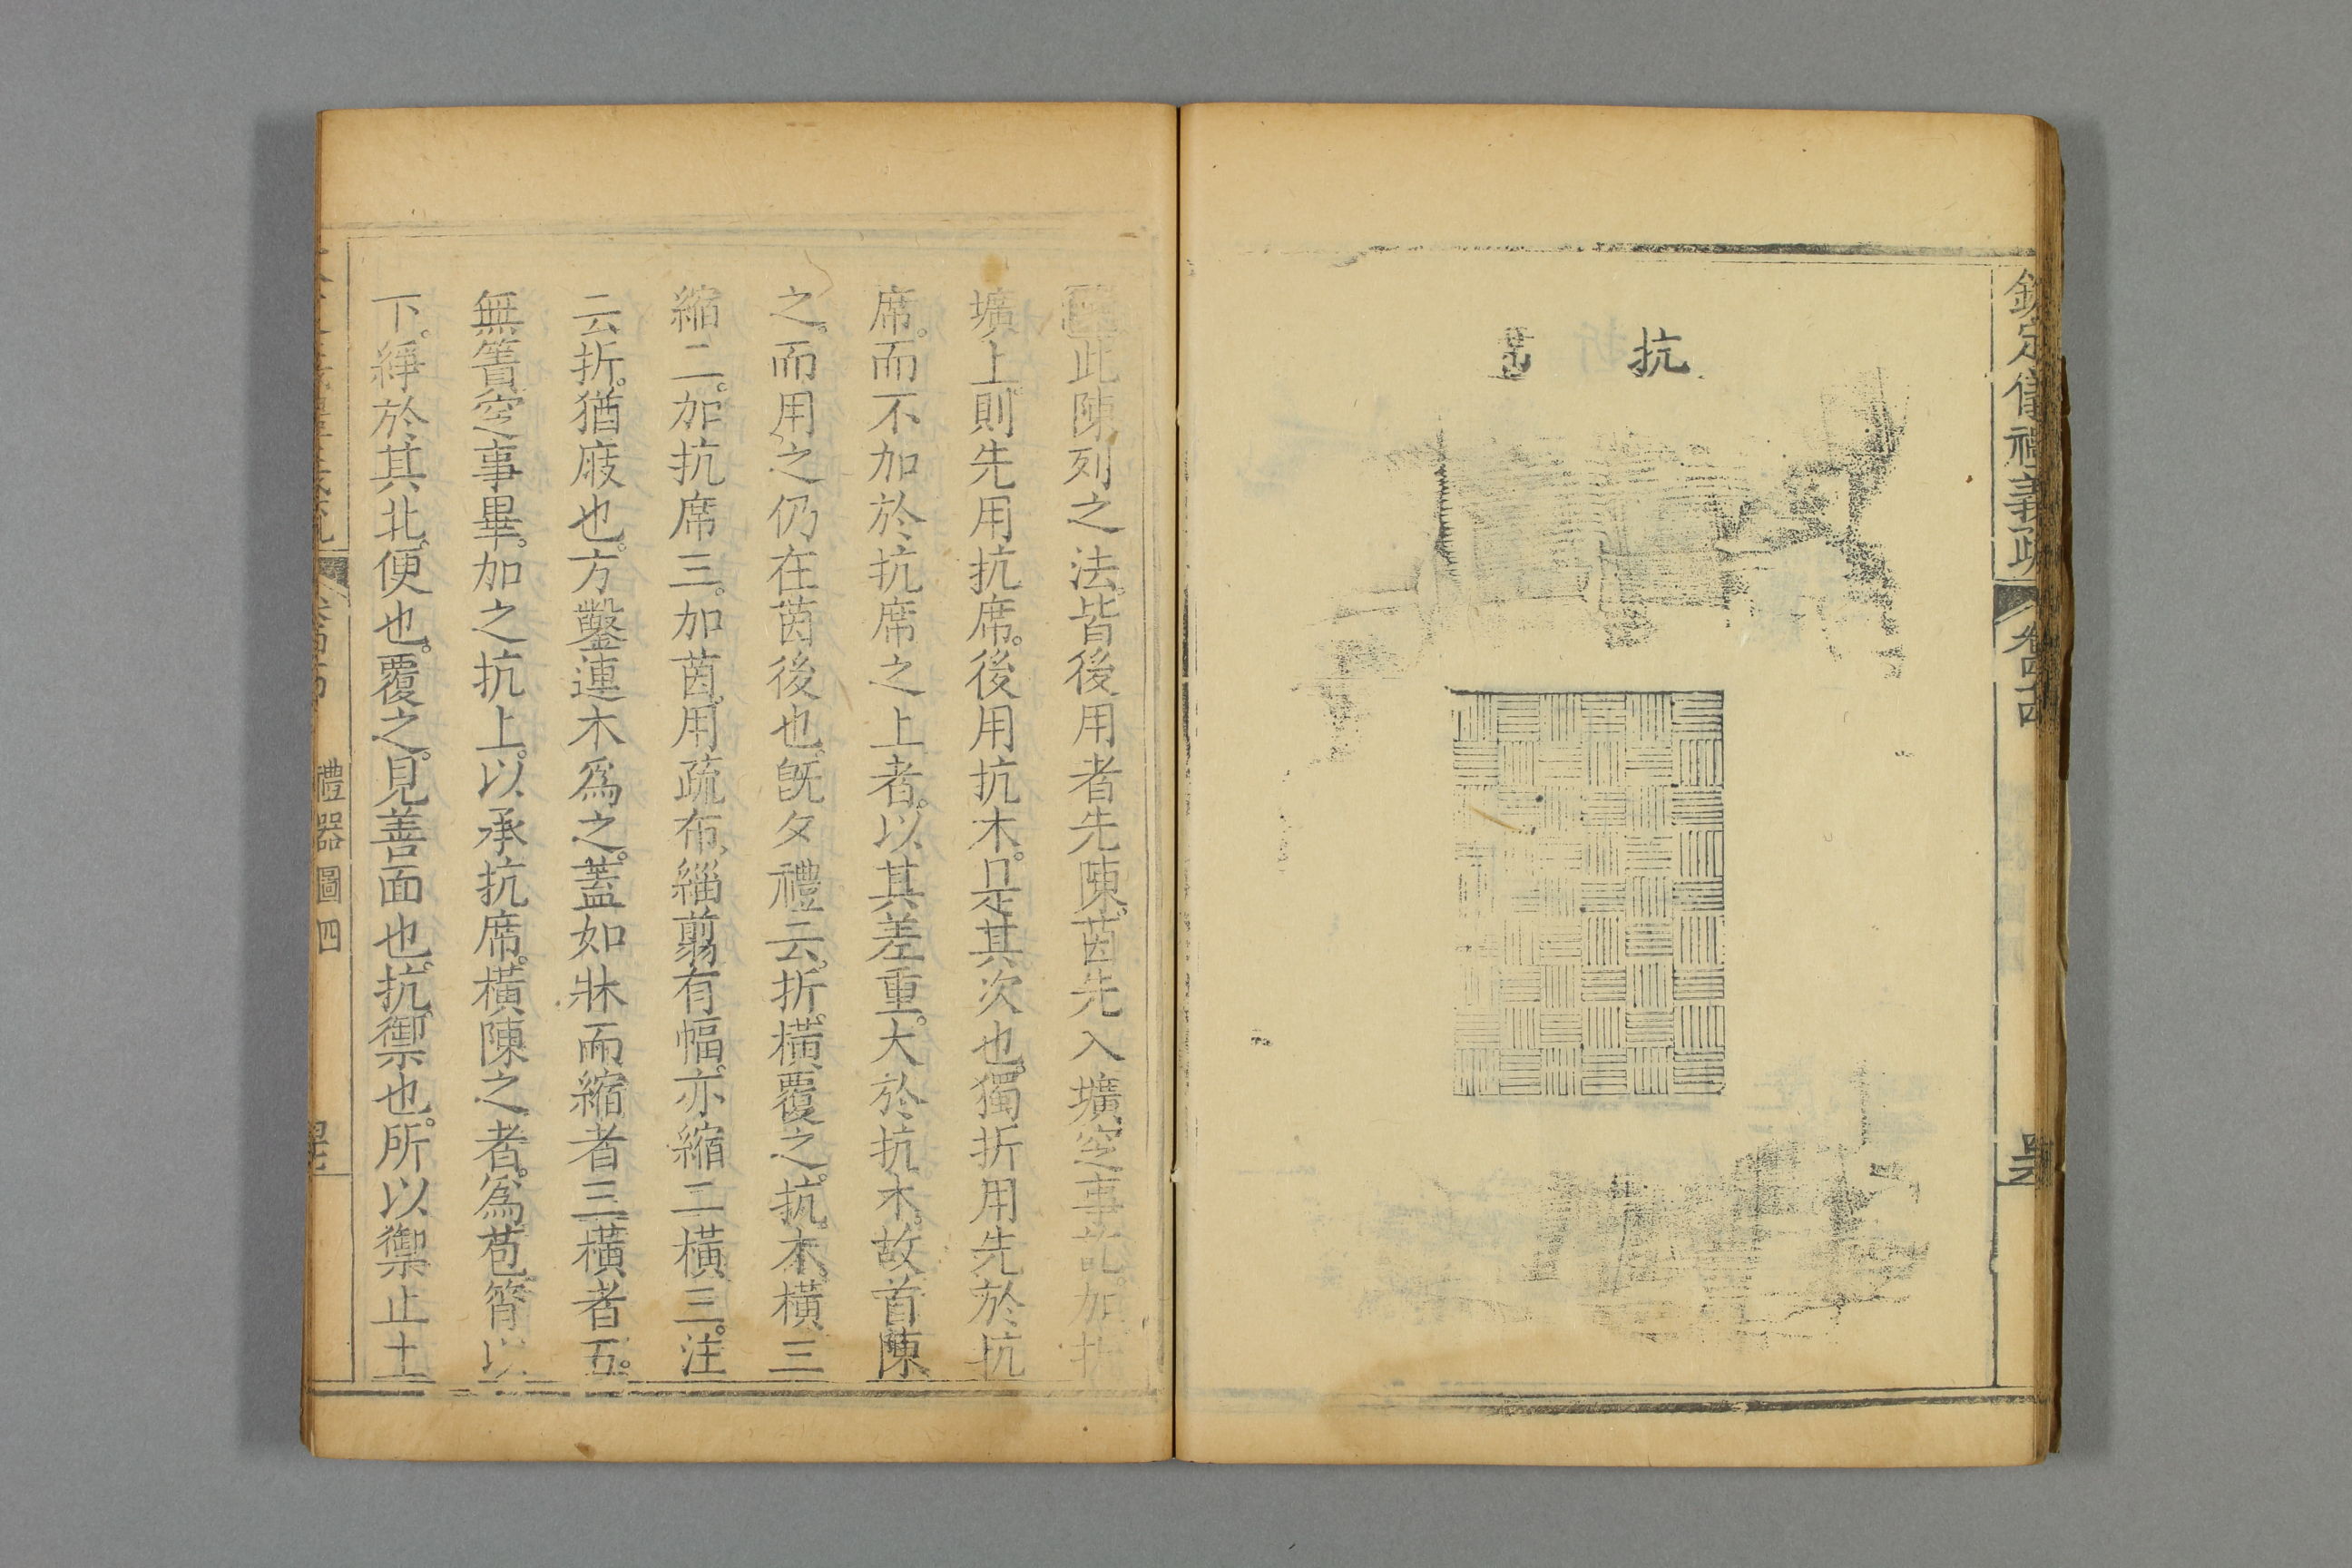 欽定儀禮義疏 卷四十四
抗
此陳列之法。皆後用者先陳。茵先入壙。窆事訖。加折
壙上。則先用抗席。後用抗木。是其次也。獨折用先於抗
席。而不加於抗席之上者。以其差重。大於抗木。故首陳
之。而用之仍在茵後也。旣夕禮云。折。橫覆之。抗。木橫三
縮二。加抗席三。加茵。用疏布。緇翦有幅。亦縮二橫三。注
云折。猶庪也。方鑿連木爲之。蓋如牀而縮者三橫者五。
無簀窆事畢。加之抗上。以承抗席。橫陳之者。爲苞筲以
下。綪於其北。便也。覆之。見善面也。抗。禦也。所以禦止土
禮器圖四